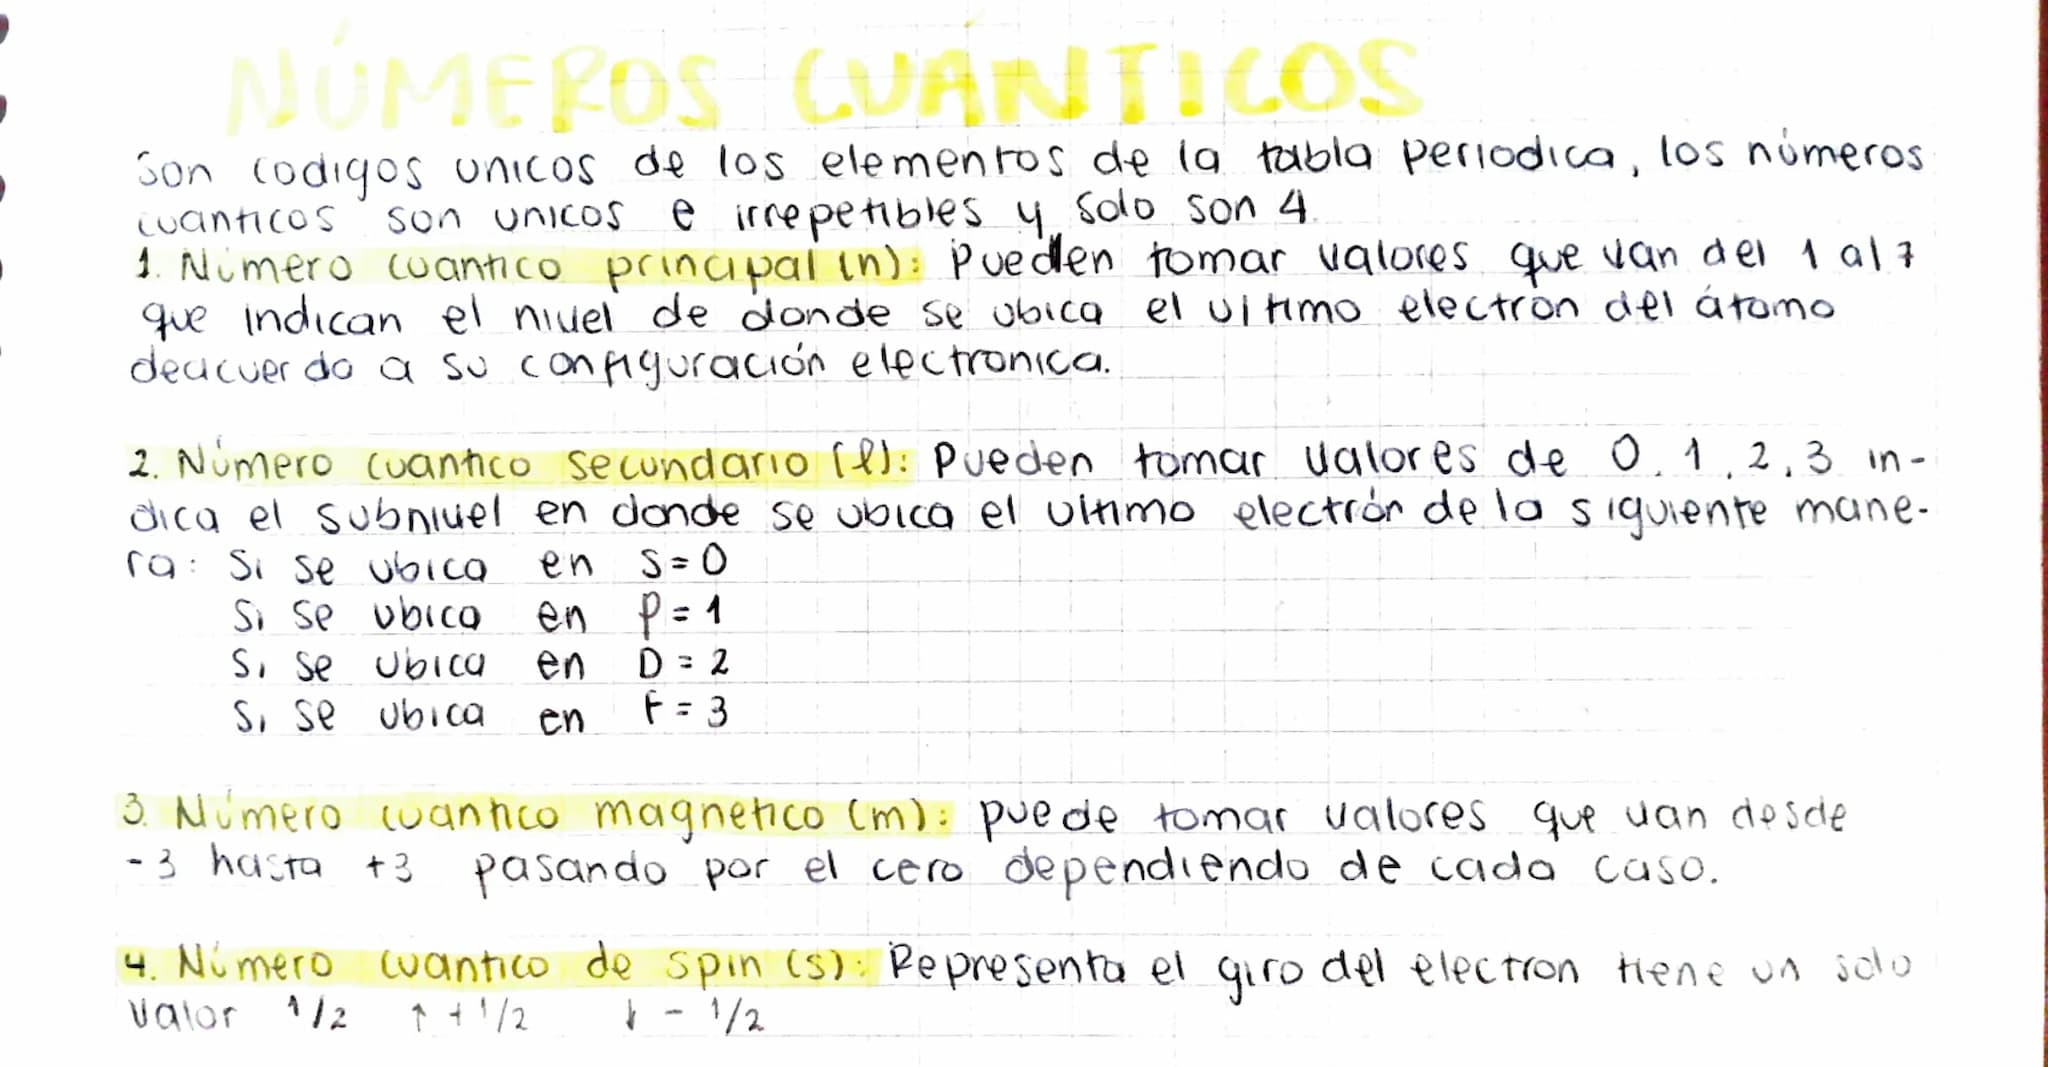 NÚMEROS CUÁNTICOS
Son codigos unicos de los elementos de la tabla periodica, los números
cuanticos son unicos e irrepetibles y solo son 4.
1. Número cuantico principal (n): Pueden tomar valores que van del 1 al 7
que indican el nivel de donde se ubica el ultimo electrón del átomo
deacuerdo a su configuración electronica.
2. Número cuantico secundario (ℓ): Pueden tomar valores de 0, 1, 2, 3 in-
dica el subnivel en donde se ubica el ultimo electrón de la siguiente mane-
ra: Si se ubica en S = 0
Si se ubica en P = 1
Si se ubica en D = 2
Si se ubica en F = 3
3. Número cuantico magnetico (m): puede tomar valores que van desde
-3 hasta +3 pasando por el cero dependiendo de cada caso.
4. Número cuantico de spin (s): Representa el giro del electron tiene un solo
valor 1/2 ↑ + 1/2 ↓ - 1/2